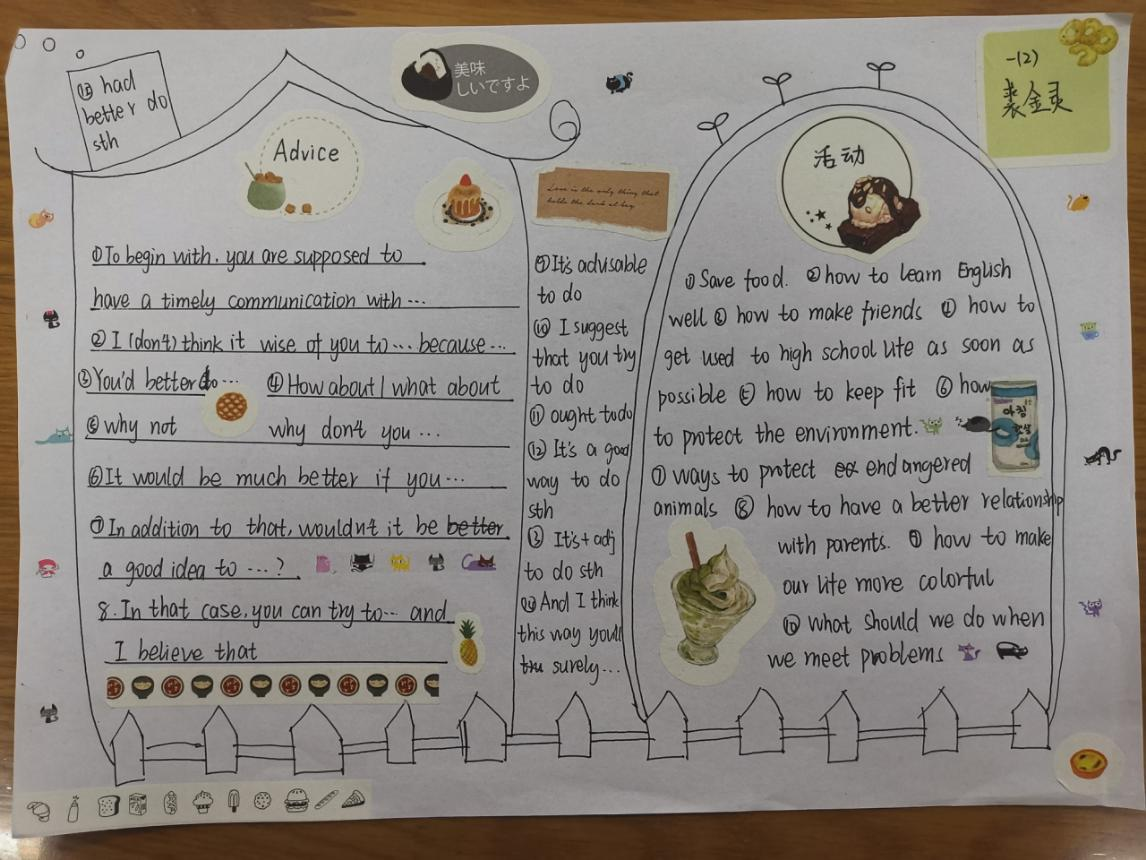 ⑮ had
better do
sth
美味
しいですよ
-(2)
裘金灵
Advice
①To begin with, you are supposed to
have a timely communication with ...
②I (don't) think it wise of you to ... because ...
③You'd better do ... ④How about / what about
⑤why not why don't you ...
⑥It would be much better if you ...
⑦In addition to that, wouldn't it be better
a good idea to ...?
8. In that case, you can try to ... and
I believe that
Love is the only thing that
holds the dark at bay
⑨It's advisable
to do
⑩ I suggest
that you try
to do
⑪ ought to do
⑫ It's a good
way to do
sth
⑬ It's + adj
to do sth
⑭ And I think
this way you'll
surely ...
活动
①Save food. ②how to learn English
well ③ how to make friends ④ how to
get used to high school life as soon as
possible ⑤ how to keep fit ⑥ how
to protect the environment.
아침
햇살
⑦ ways to protect endangered
animals ⑧ how to have a better relationship
with parents. ⑨ how to make
our life more colorful
⑩ what should we do when
we meet problems